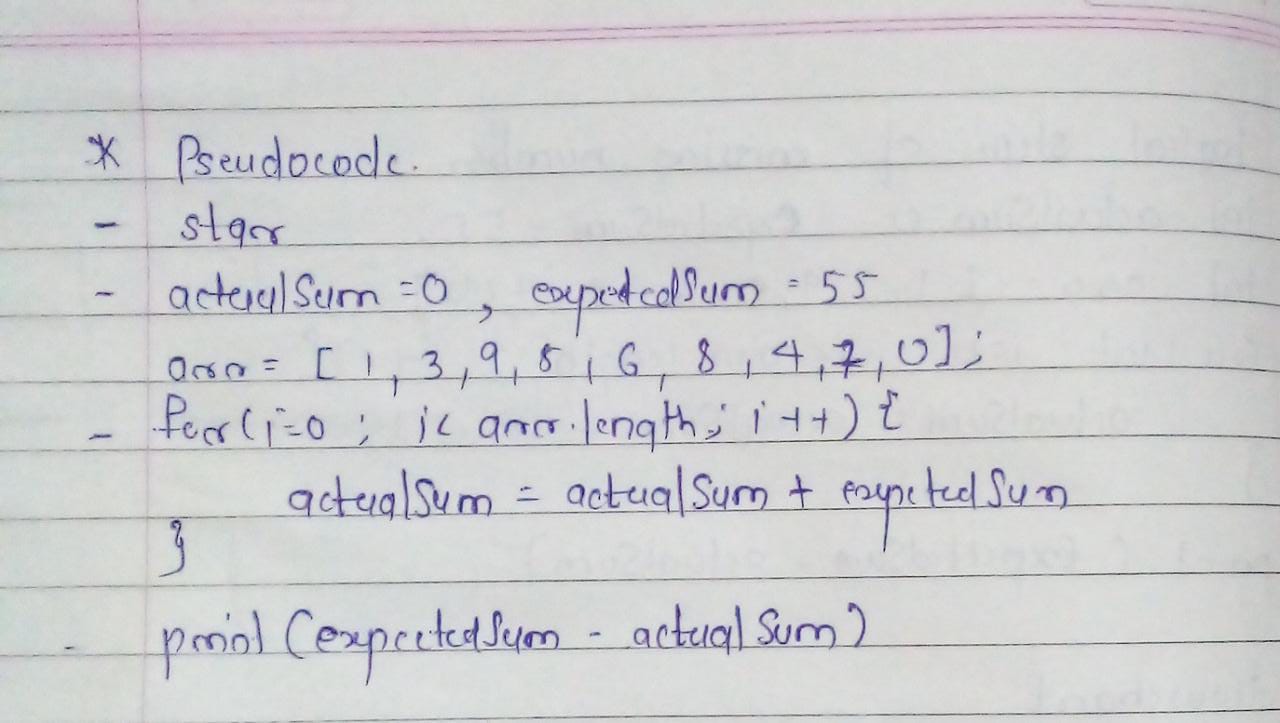 * Pseudocode.
- star
- actualSum = 0, expectedSum = 55
arr = [1, 3, 9, 5, 6, 8, 4, 7, 0];
- for(i=0; i< arr.length; i++) {
actualSum = actualSum + expectedSum
}
- print (expectedSum - actualSum)